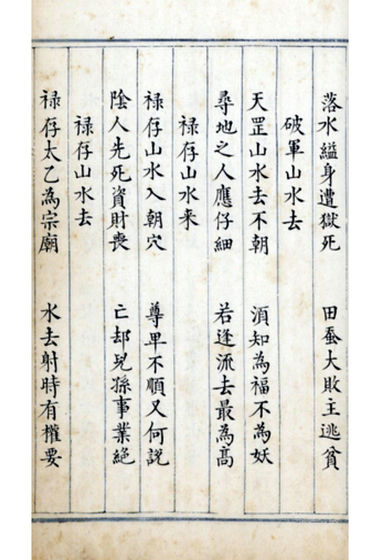 落水縊身遭獄死　田蚕大敗主逃貧
破軍山水去
天罡山水去不朝　須知為福不為妖
尋地之人應仔細　若逢流去最為高
禄存山水来
禄存山水入朝穴　尊卑不順又何説
陰人先死資財喪　亡却兒孫事業絶
禄存山水去
禄存太乙為宗廟　水去射時有權要